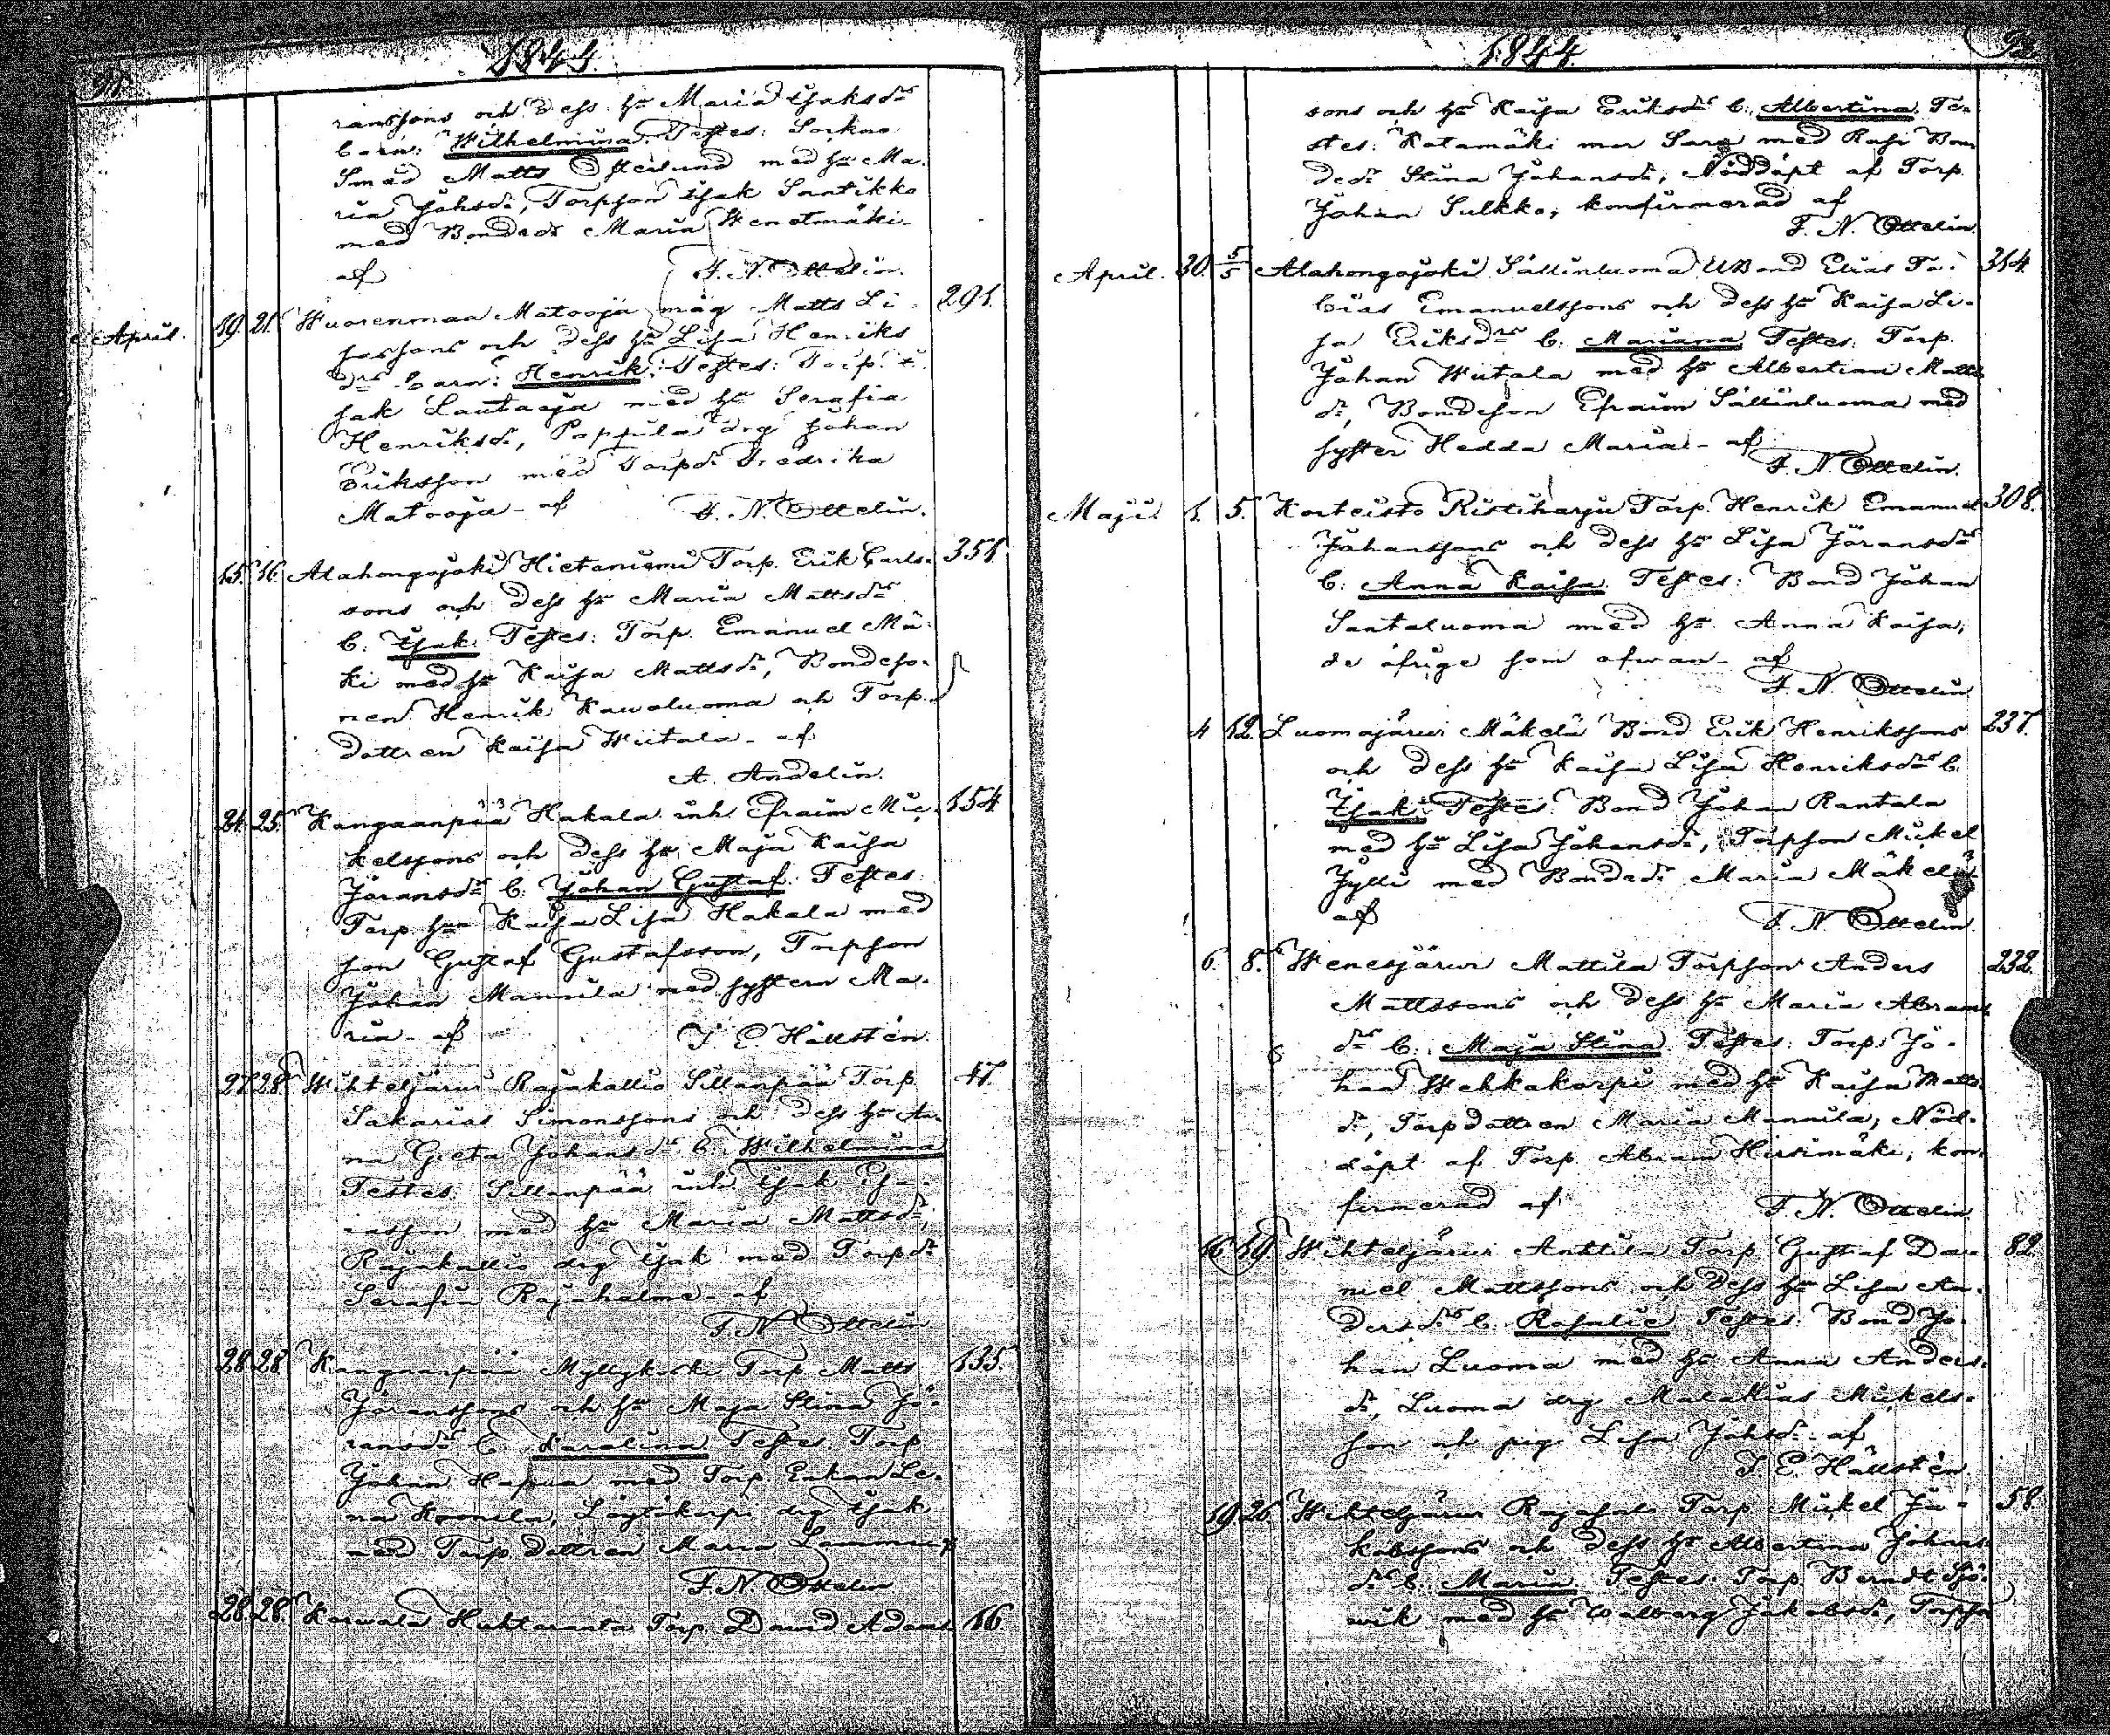 1844.
ranssons och dess hu Maria Isaksdr
barn: Wilhelmina. Testes: Sorkno
Smäd Matts Österlund med hu Ma-
ria Johsdr, Torpson Isak Santikko
med Bondedr Maria Wenetmäki
af F. N. Ottelin.
April. 19. 21. Wuorenmaa Matooja måg Matts Li- 291.
sassons och dess hu Lisa Henriks
drs barn: Henrik. Testes: Torp. I-
sak Lautaoja med hu Serafia
Henriksdr, Poppila drg Johan
Eriksson med Torpdr Fredrika
Matooja - af F. N. Ottelin.
15. 16. Alahongojoki Hietaniemi Torp. Erik Carls- 351
sons och dess hu Maria Mattsdr
b. Isak Testes: Torp. Emanuel Mä-
ki med hu Kaisa Mattsdr, Bondeso-
nen Henrik Kauoluoma och Torp.
dottren Kaisa Wiitala - af
A. Andelin.
24. 25. Kangaanpää Hakala inh Efraim Mic- 154
kelssons och dess hu Maja Kaisa
Jöransdr b. Johan Gustaf. Testes:
Torp. hu Kaisa Lisa Hakala med
son Gustaf Gustafsson, Torpson
Johan Mannila med systern Ma-
ria - af J. E. Hällstén.
27 28 Wihteljärwi Rajakallio Sillanpää Torp. 47.
Sakarias Simonssons och dess hu An-
na Greta Johansdr b. Wilhelmina
Testes: Sillanpää inh Isak
asson med hu Maria Mattsdr,
Rajakallio drg Isak med Torpdr
Serafia Rajahalme - af
F. N. Ottelin
28 28 Kangaanpää Myllykoski Torp Matts 135
Jöranssons och hu Maja Stina Jö-
ransdr b. Karolina Testes: Torp
Johan Hapua med Torp. Enkan Le-
na, drg Isak
med Torp. dottren Maria
F. N. Ottelin
28 28 Karwala Huhtaranta Torp. David Adams- 16
1844.
sons och hu Kaisa Eriksdr b. Albertina. Te-
stes: Katamäki mor Sara med Bon
dedr Stina Johansdr, Nöddöpt af Torp.
Johan Sulkko, konfirmerad af
F. N. Ottelin
April. 30. 5/5 Alahongojoki Sällinluoma UBond Elias To- 314.
bias Emanuelssons och dess hu Kaisa Li-
sa Eriksdr b. Mariana Testes: Torp.
Johan Wiitala med hu Albertina Matts
dr, Bondeson Efraim Sällinluoma med
syster Hedda Maria - af
F. N. Ottelin.
Maji. 1. 5. Korteisto Ristiharju Torp. Henrik Emanuel 308.
Johanssons och dess hu Lisa Jöransdr
b. Anna Kaisa. Testes: Bond Johan
Santaluoma med hu Anna Kaisa,
de öfrige som ofwan - af
F. N. Ottelin
4 12. Luomajärwi Mäkelä Bond Erik Henrikssons 237.
och dess hu Kaisa Lisa Henriksdr b.
Isak: Testes: Bond Johan Rantala
med hu Lisa Johansdr, Torpson Mickel
Jylli med Bondedr Maria Mäkelä
af F. N. Ottelin
6. 8. Wenesjärwi Mattila Torpson Anders 232.
Mattssons och dess hu Maria Abrams
dr b. Maja Stina Testes: Torp. Jo-
han Wehkakorpi med hu Kaisa Matts
dr, Torpdottren Maria Mannila, Nöd-
döpt af Torp. Abram Hirsimäki, kon-
firmerad af F. N. Ottelin
16 19 Wihteljärwi Anttila Torp Gustaf Da- 82
niel Mattssons och dess hu Lisa An-
dersdr b. Rosalie Testes: Bond Jo-
han Luoma med hu Anna Anders-
dr, Luoma drg Malakias Mickels-
son och pig. Lisa Johsdr - af
J. E. Hällstén
19 26 Wihteljärwi Rajasalo Torp. Mickel Ja- 58
kobssons och dess hu Albertina Johans
dr b. Maria Testes: Torp Berndt Sjö-
wik med hu Walborg Jakobsdr, Torpson